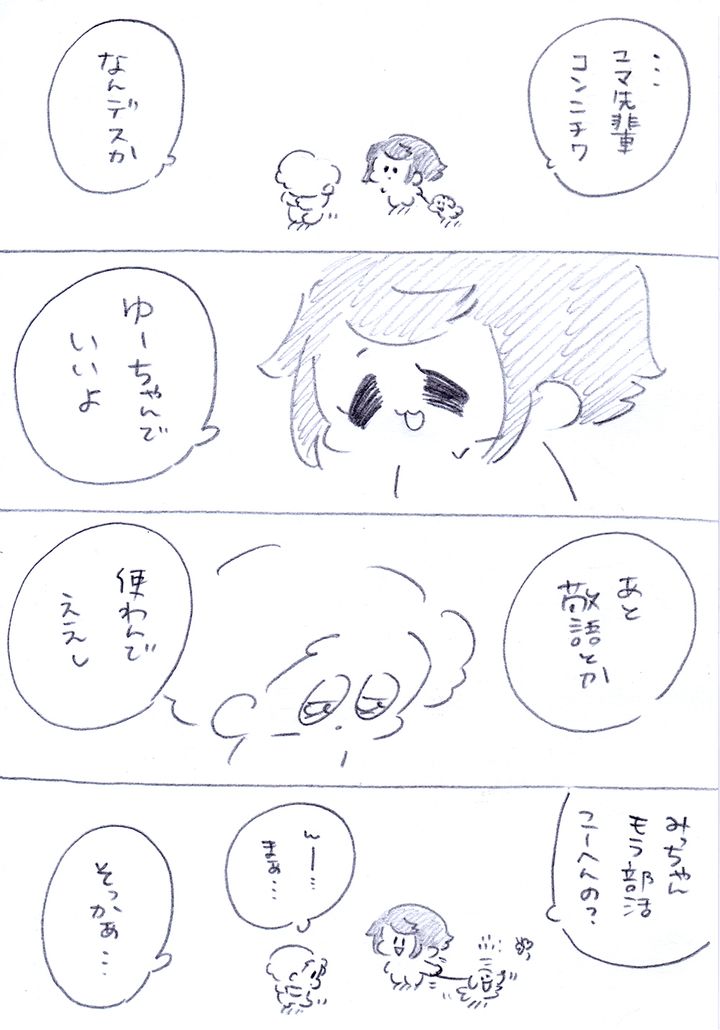 …
コマ先輩
コンニチワ
なんデスか
ゆーちゃんで
いいよ
あと
敬語とか
使わんで
ええし
みっちゃん
もう部活
こーへんの?
んー…
まぁ…
そっかぁ…